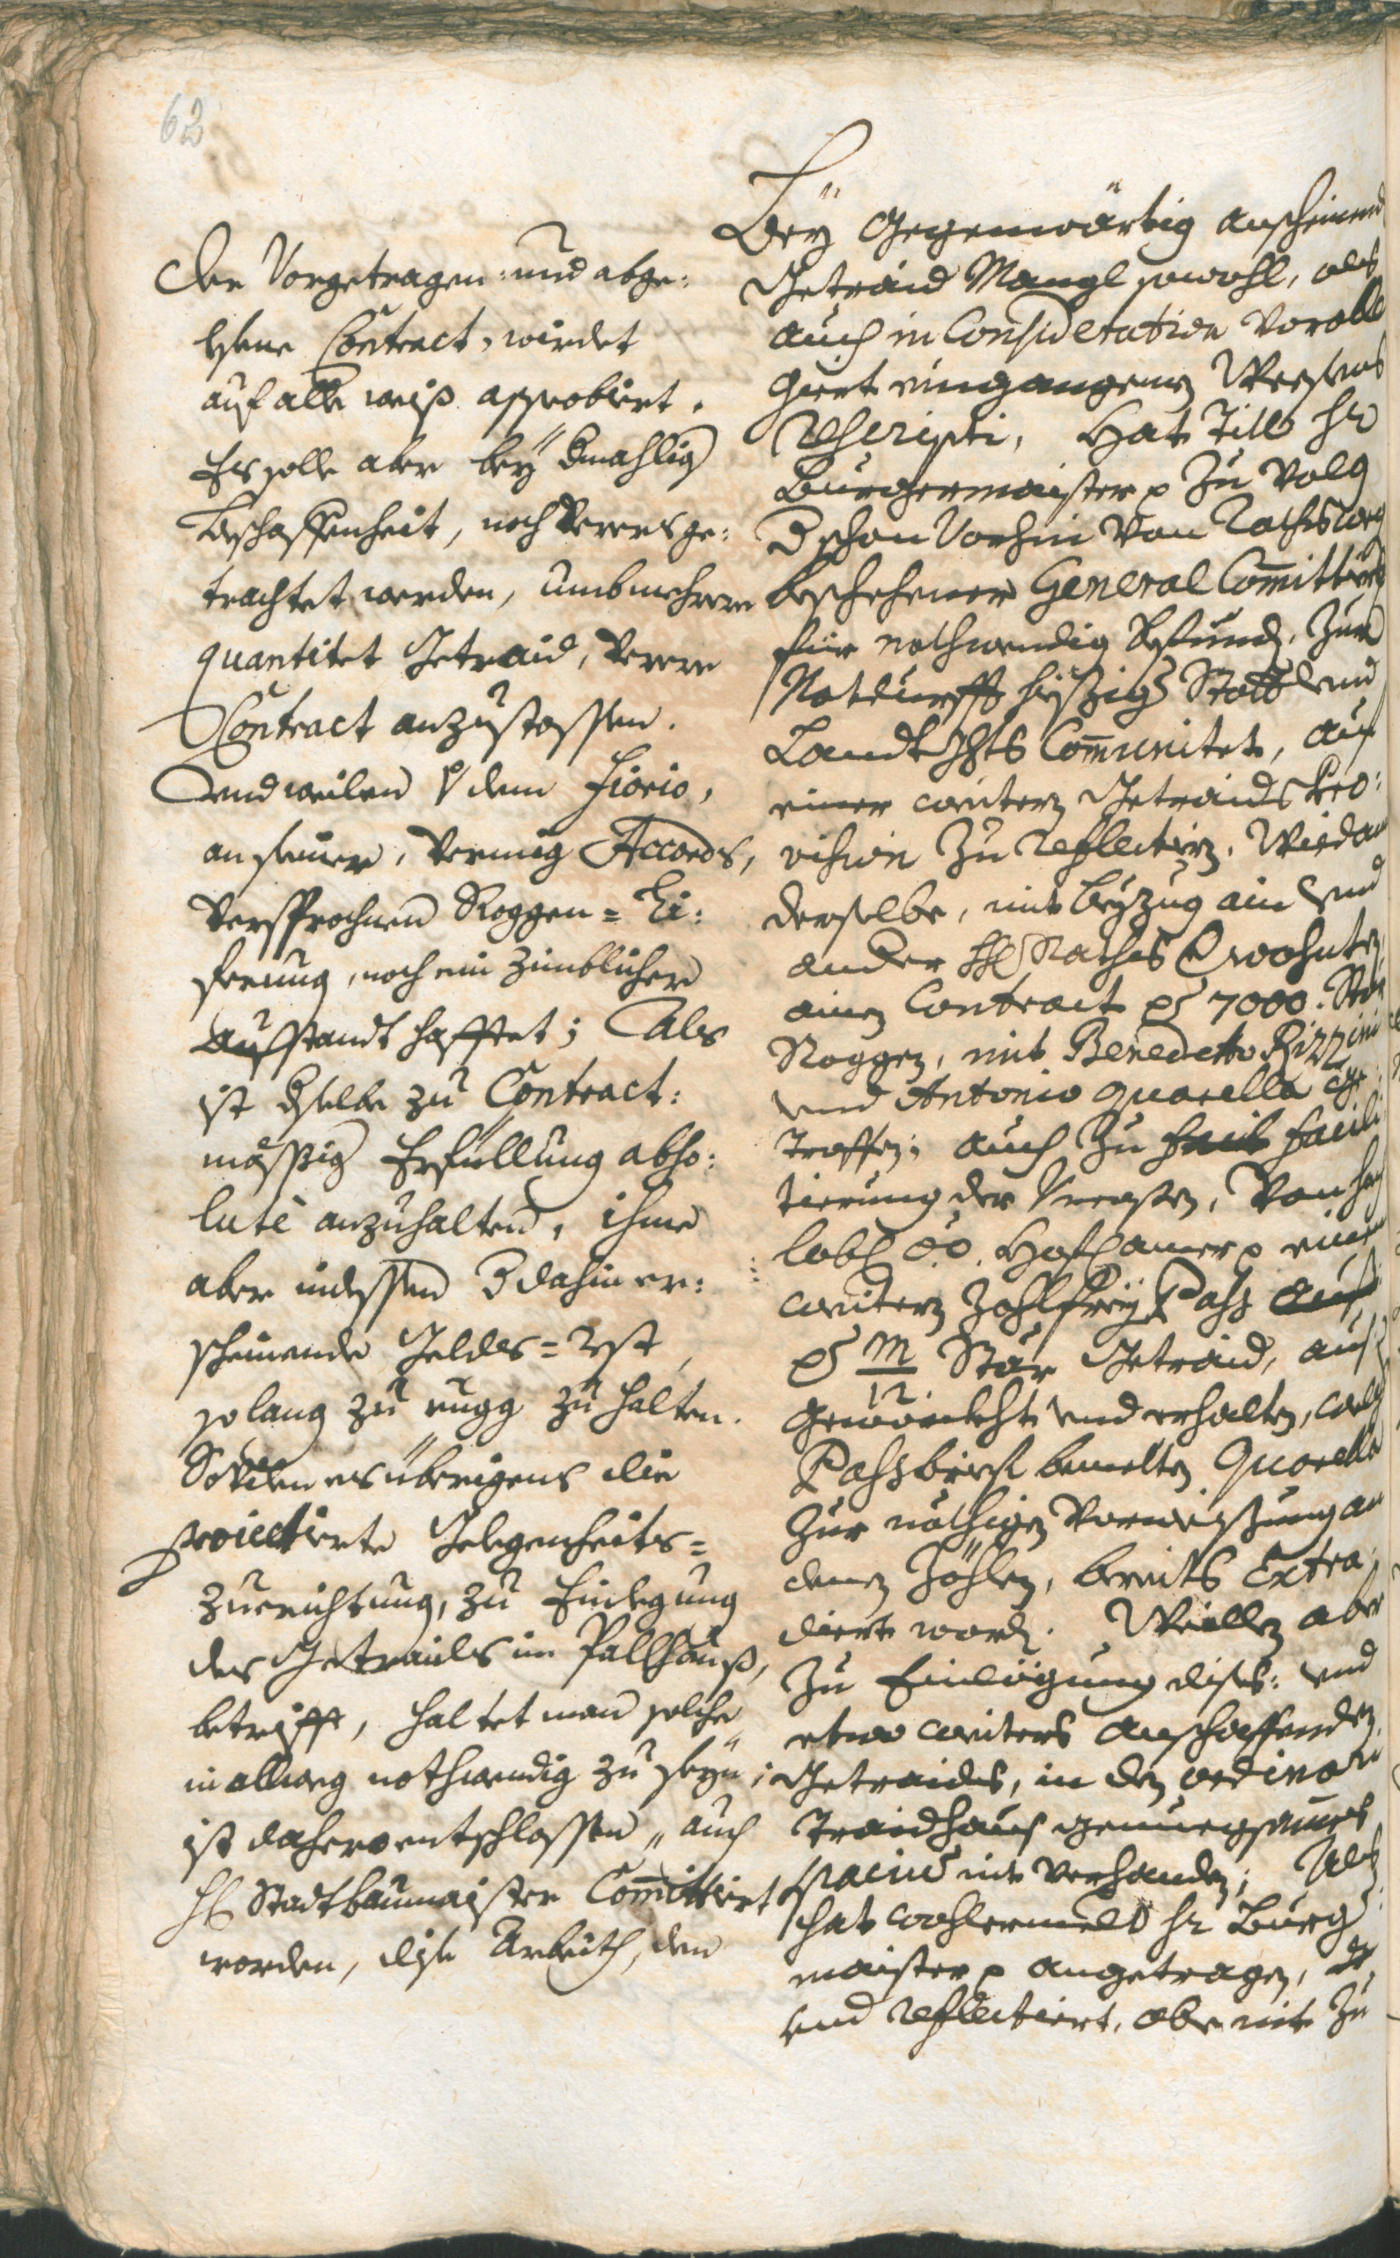 62
Der Vorgetragen: und abge:
lesene Contract, wirdet
auf alle weiß approbiert.
Es solle aber beÿ dmahlig
Beschaffenheit, noch ferers ge:
trachtet werden, umb mehrere
quantitet Getraid, ferere
Contract anzustossen.
Und weilen d dem Fiorio,
an seiner, vermig Accords,
versprochnen Roggen=Li:
ferung, noch ein zimblicher
Ausstandt hafftet; Als
ist dselbe zu Contract:
mässig Erfüllung abso:
lutè anzuhalten, ihme
aber indessen d dahin er:
scheinende Geldts=rest,
so lang zu rugg zu halten.
Sovilen es überigens die
proiectierte Gelegenheits=
zuerichtung, zu Einlegung
des Getraides im Pallhauß,
betrifft, haltet man solche
in allweg nothwendig zu seÿn;
ist dahero entschlossen, auch
Hl Stadtbaumaister Committiert
worden, dise Arbeith, den
Beÿ Gegenwärtig anscheinend
Getraid Mangl sowohl, als
auch in Consideration vorable
giert eingangenen Weesens
Rescripti, Hat Titl Hr
Burgermaister p zu Volg
d schon vorhin von Rathsweg
beschehener General Committierg
für nothwendig befund, zur
Notdurfft hiesigr Statt und
Landtghts Communitet, auf
einer weitern Getraids Pro:
vision zu reflectiern. Wie dan
derselbe, mit beÿzug ain und
ander HH Raths Verwohnten,
ainen Contract p 7000. Stär
Roggen, mit Benedetto Rizzini
und Antonio Quarella ge:
troffen; auch zu facili
tierung der Unkosten, von hoch
lobl. O:O. Hofcamer p einen
weitern Zohlfreÿ Pass
p M/12 Stär Getraid, auß
gewürckht und erhalten, welch
Passbrief bemelten Quarella
zur nöthigen Vorweisung an
denen Zöhlen, bereits Extra:
diert word. Weillen aber
zu Einlögung dises: und
etwo weiters anschaffenden
Getraides, in den ordinari
Traidhaus genuegsames
spacium nit verhanden; Als
hat wohlermelt Hr Burger
maister p angetragen,
und reflectiert, ob nit zu